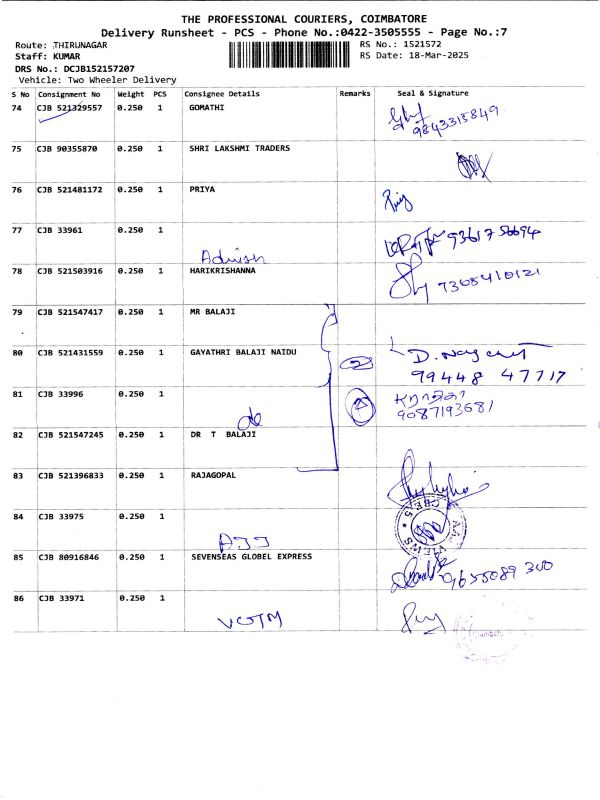 THE PROFESSIONAL COURIERS, COIMBATORE
Delivery Runsheet - PCS - Phone No.:0422-3505555 - Page No.:7
Route: THIRUNAGAR RS No.: 1521572
Staff: KUMAR RS Date: 18-Mar-2025
DRS No.: DCJB152157207
Vehicle: Two Wheeler Delivery
S No Consignment No Weight PCS Consignee Details Remarks Seal & Signature
74 CJB 521329557 0.250 1 GOMATHI
9843313849
75 CJB 90355870 0.250 1 SHRI LAKSHMI TRADERS
76 CJB 521481172 0.250 1 PRIYA
77 CJB 33961 0.250 1
78 CJB 521503916 0.250 1 HARIKRISHANNA
7368410121
79 CJB 521547417 0.250 1 MR BALAJI
80 CJB 521431559 0.250 1 GAYATHRI BALAJI NAIDU 2
99448 47717
81 CJB 33996 0.250 1
9087193681
82 CJB 521547245 0.250 1 DR T BALAJI
83 CJB 521396833 0.250 1 RAJAGOPAL
84 CJB 33975 0.250 1
85 CJB 80916846 0.250 1 SEVENSEAS GLOBEL EXPRESS
9655089 300
86 CJB 33971 0.250 1